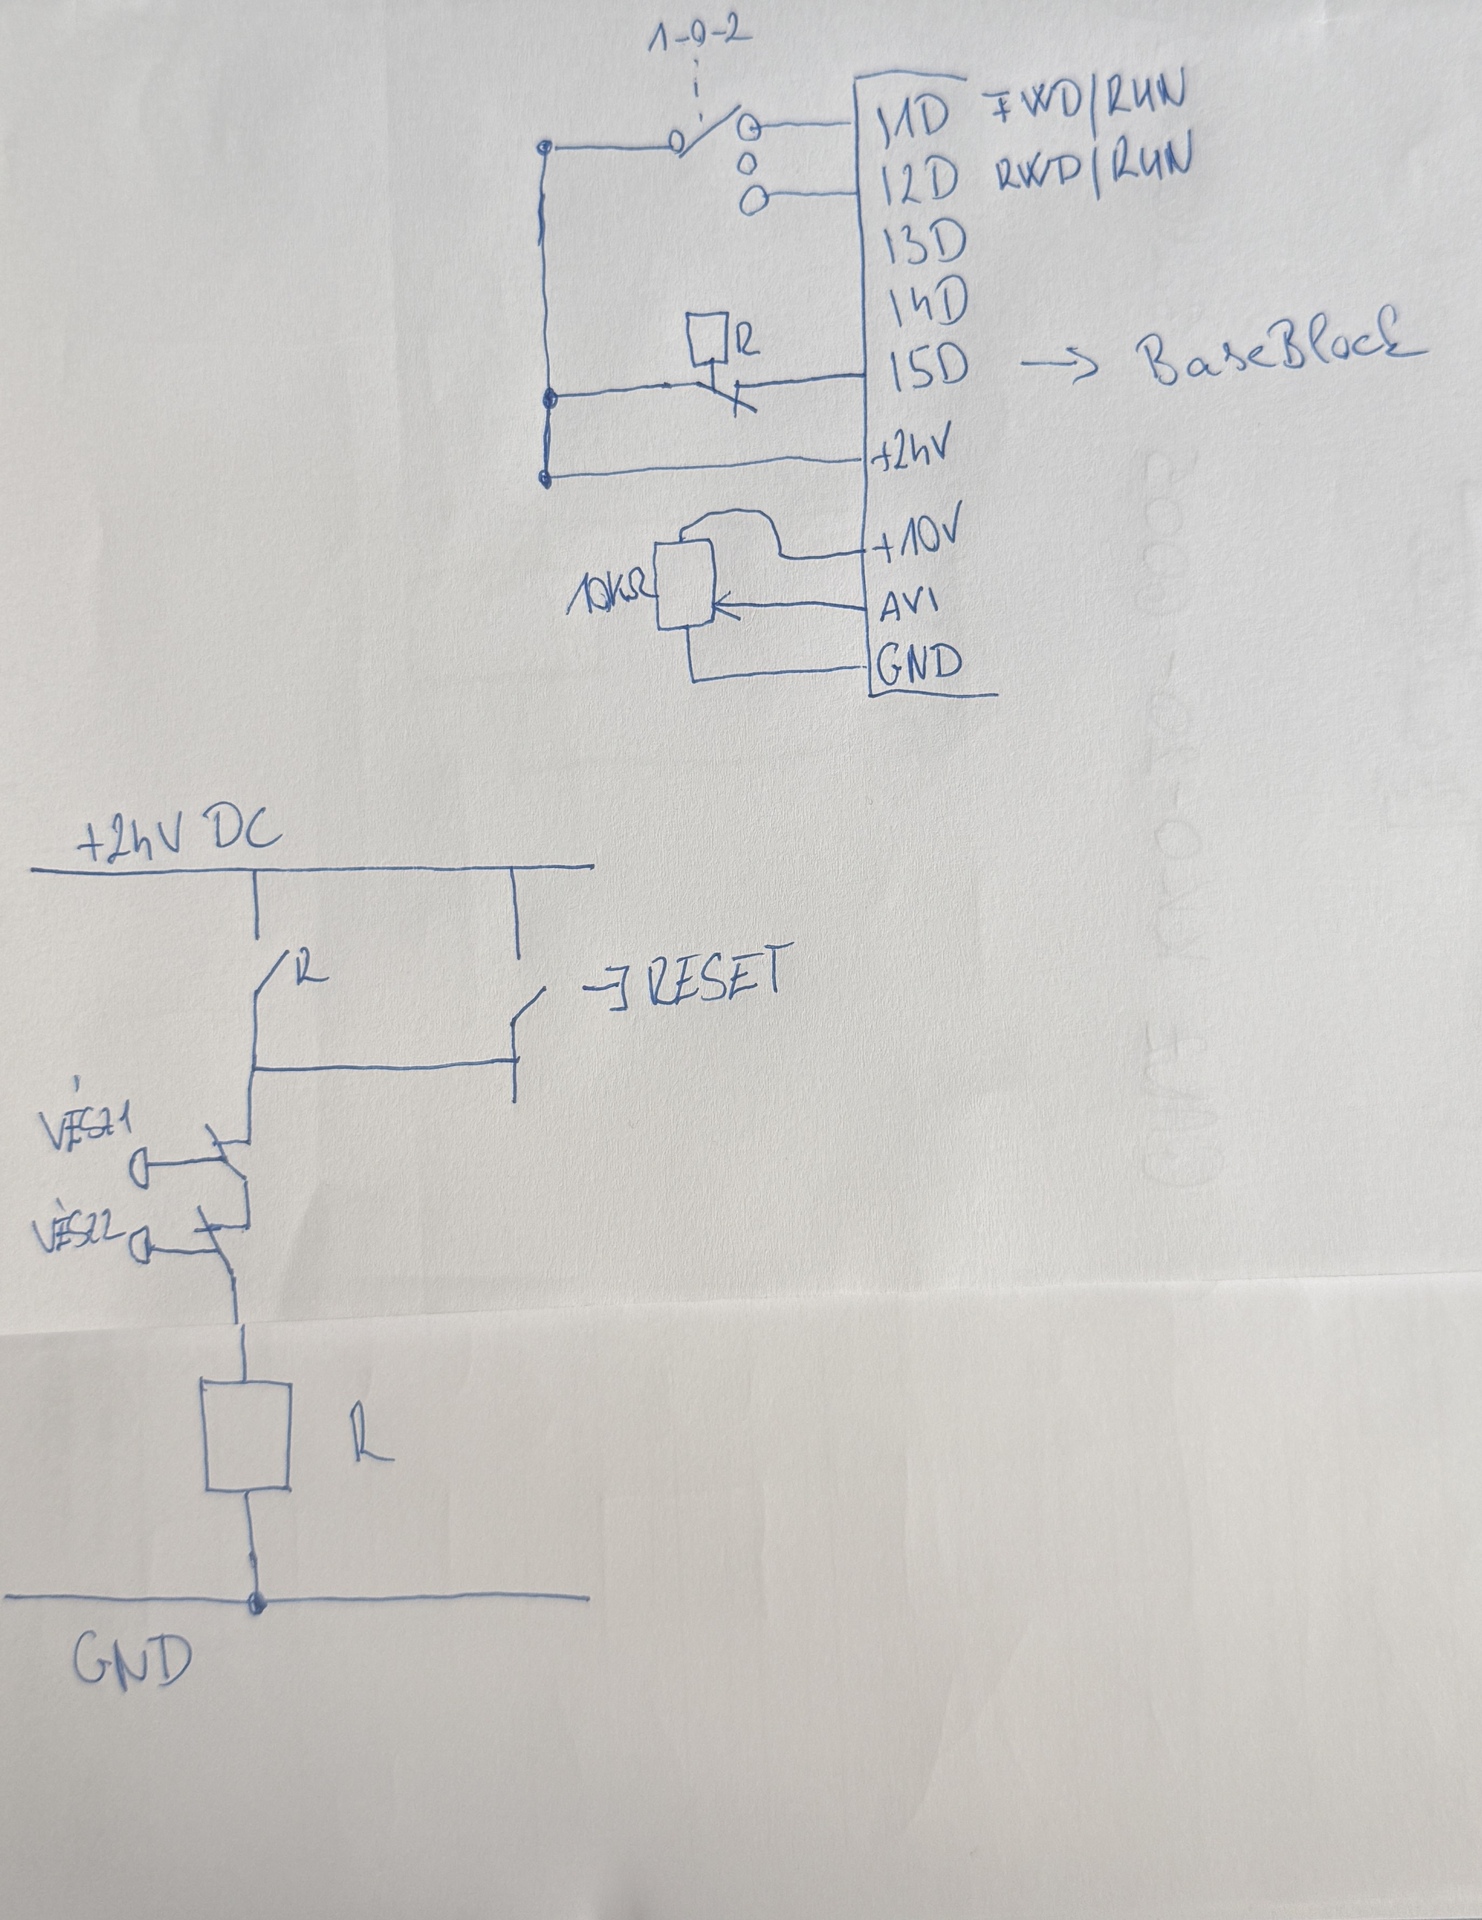 1-0-2
11D FWD/RUN
12D RWD/RUN
13D
14D
R
15D → BaseBlock
+24V
+10V
10KΩ
AVI
GND
+24V DC
R
RESET
VÉSZ1
VÉSZ2
R
GND